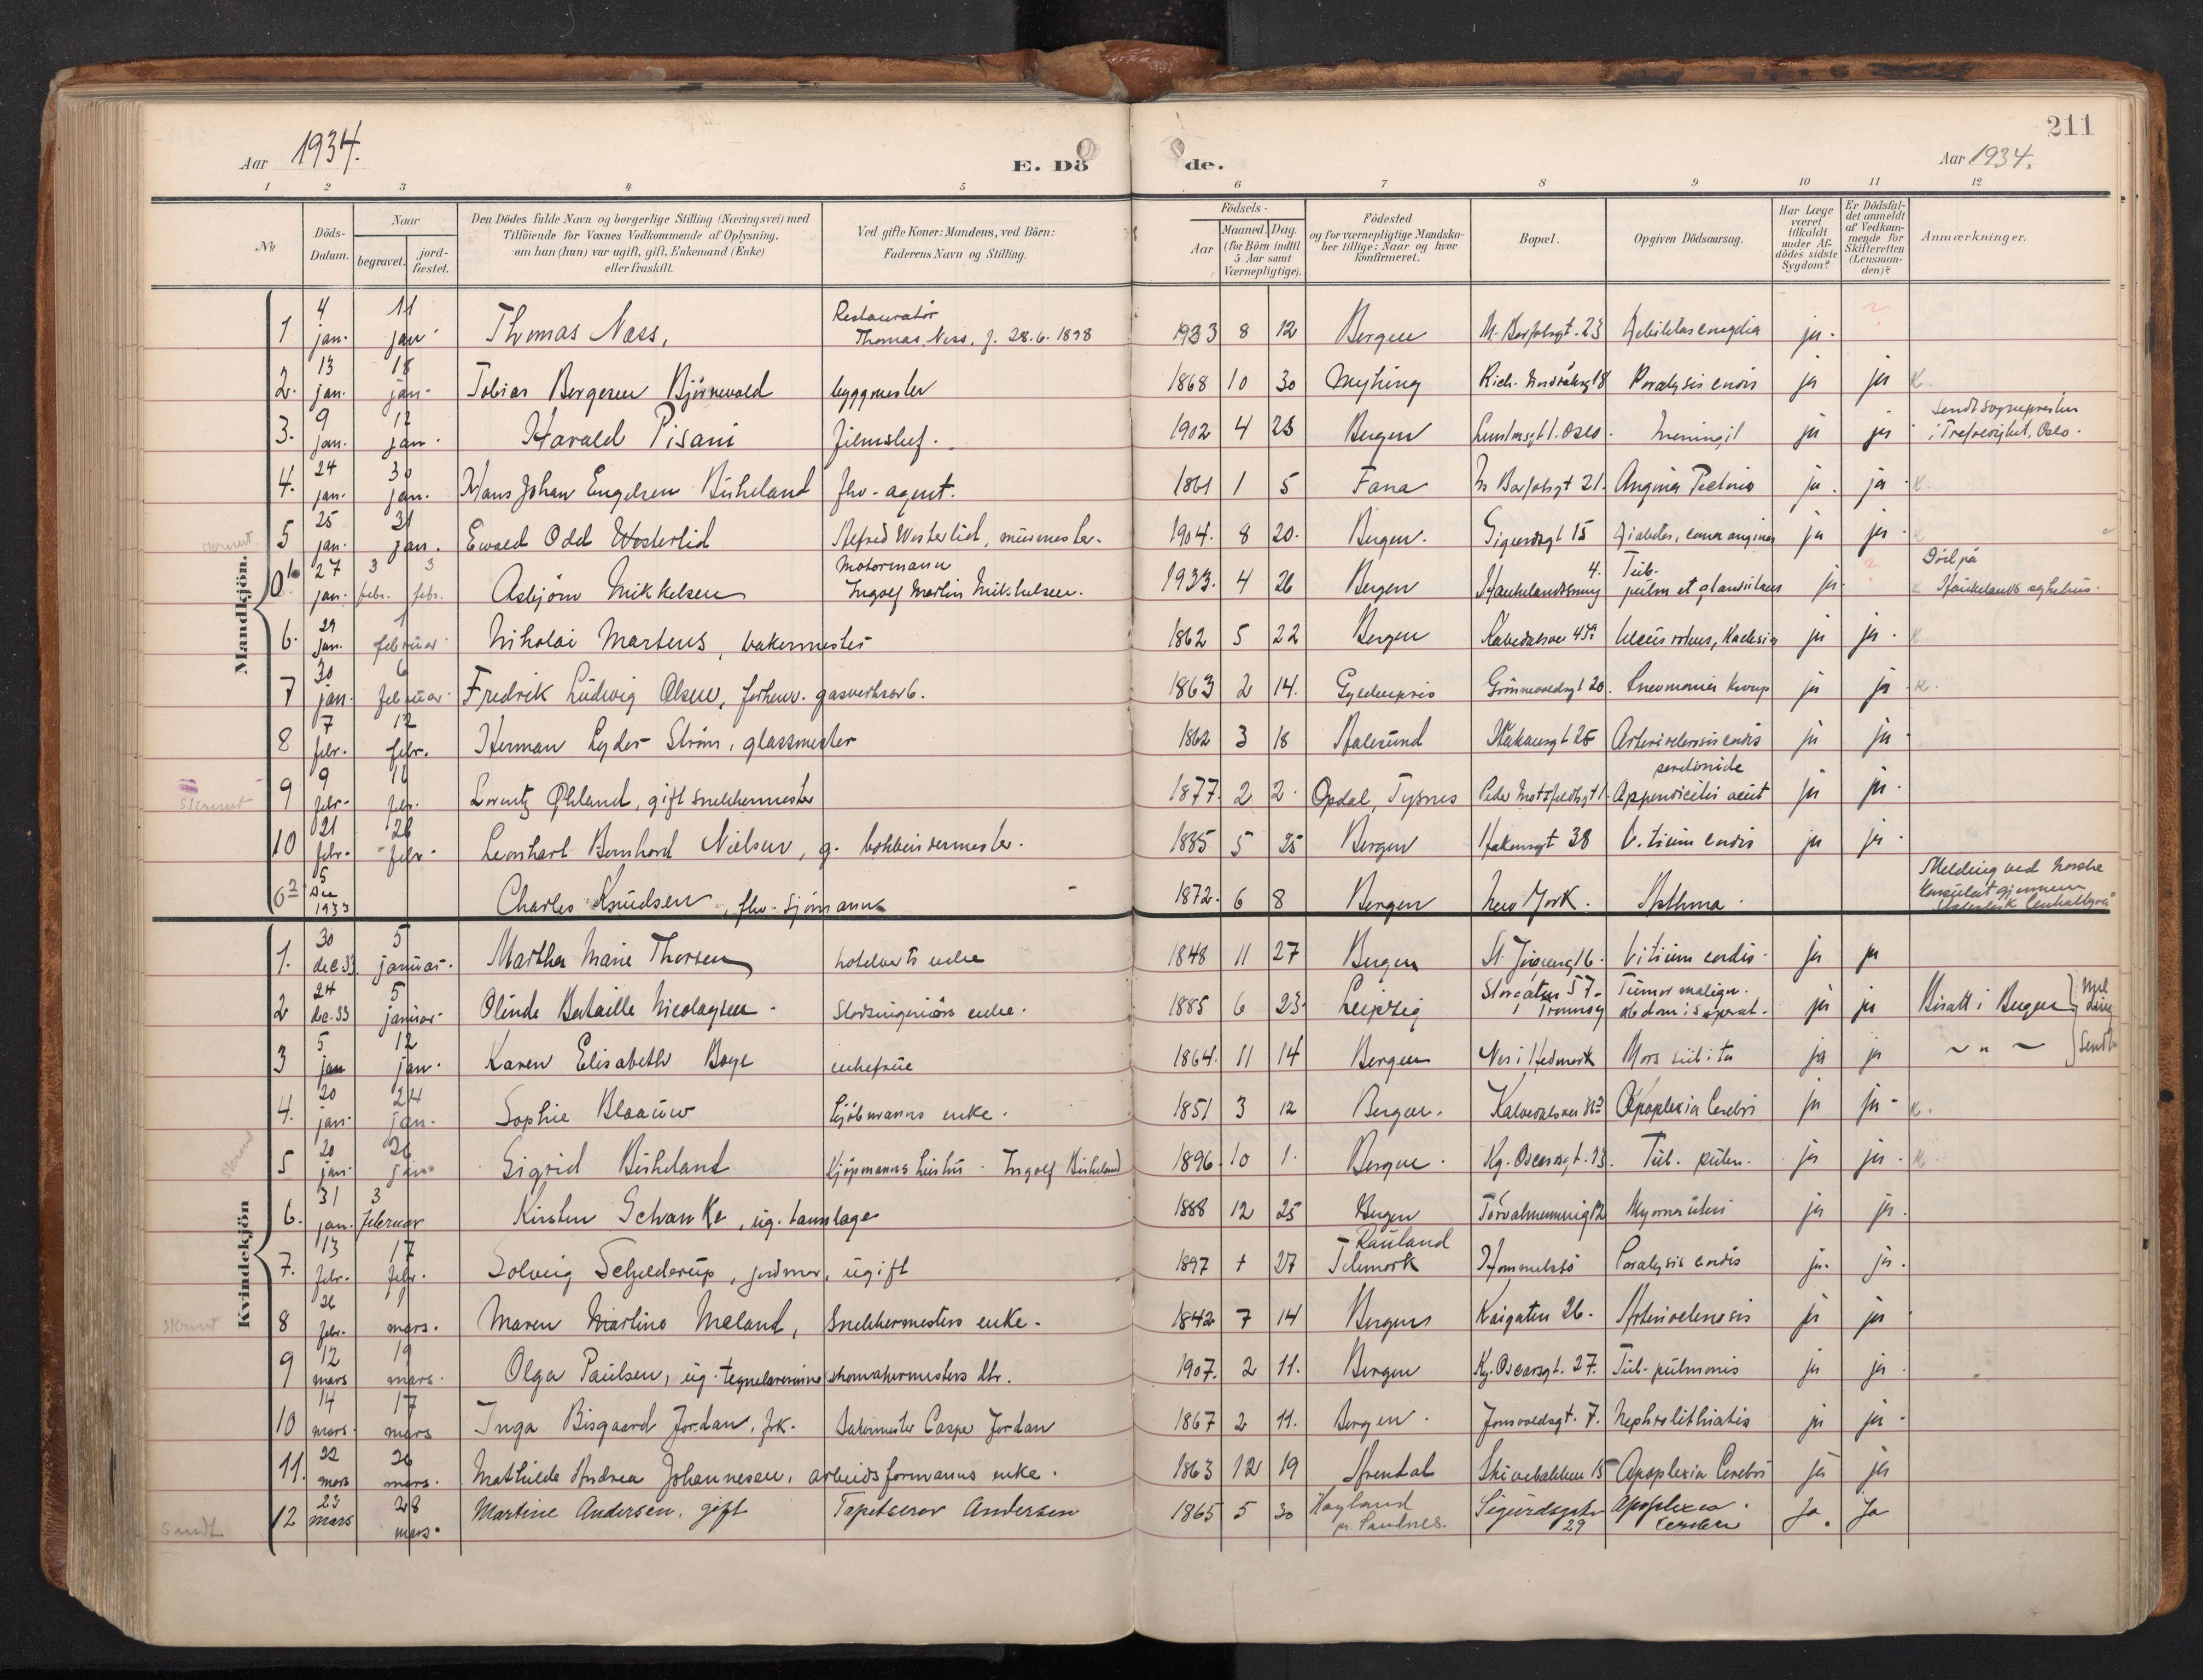 211
Aar 1934.
E. Dö de.
Aar 1934.
1 2 3 4 5 6 7 8 9 10 11 12
No
Döds-Datum.
Naar
begravet.
jord-fæstet.
Den Dödes fulde Navn og borgerlige Stilling (Næringsvei) med
Tilföiende for Voxnes Vedkommende af Oplysning,
om han (hun) var ugift, gift, Enkemand (Enke)
eller fraskilt.
Ved gifte Koner: Mandens, ved Börn:
Faderens Navn og Stilling.
Födsels-
Aar
Maaned. Dag.
(for Börn indtil
5 Aar samt
Værnepligtige).
Födested
og for værnepligtige Mandska-
ber tillige: Naar og hvor
konfirmeret.
Bopæl.
Opgiven Dödsaarsag.
Har Læge
været
tilkaldt
under Af-
dödes sidste
Sygdom?
Er Dödsfal-
det anmeldt
af Vedkom-
mende for
Skifteretten
(Lensman-
den)?
Anmærkninger.
Mandkjön.
1 4 jan. 11 jan. Thomas Næss, Restauratör Thomas Næss, f. 28.6.1898 1933 8 12 Bergen ja.
2. 13 jan. 18 jan. Tobias Bergesen Björnevold byggmester 1868 10 30 Paralysis cordis ja ja K.
3. 9 jan. 12 jan. Harald Pisani 1902 4 23 Bergen Oslo. Meningit ja ja Sendt sognepresten i Trefoldighet, Oslo.
4. 24 jan. 30 jan. Hans Johan Engelsen Birkeland fhv. agent. 1861 1 5 Fana 21. Angina Pectoris ja. ja K.
5 25 jan. 31 jan. Ewald Odd Westerlid Alfred Westerlid, murmester. 1904. 8 20. Bergen. Sigurdsgt 15 Diabetes, coma ja ja.
27 jan. 3 febr. 3 febr. Asbjörn Mikkelsen Motormann Ingolf Martin Mikkelsen. 1933. 4 26 Bergen Tub. pulm et ja. Död på Haukelands sykehus.
6. 29 jan. 1 februar Nikolai Martens, bakermester 1862 5 22 Bergen Kalvedalsvei ja ja. K.
7 30 jan. 6 februar. Fredrik Ludvig Olsen, forhenv. gasverksarb. 1863 2 14. Gyldenpris Grönnevoldsgt 20. Pneumonia ja ja K.
8 7 febr. 12 febr. Herman Lyder Ström, glassmester 1862 3 18 Aalesund Hakonsgt 25 ja ja
9 9 febr. febr. Lorentz Øhland, gift snekkermester 1877. 2 2. Opdal, Tysnes Peder Motzfeldtsgt 1. Appendicitis acut ja ja.
10 21 febr. 26 febr. Leonhart Bernhard Nielsen, g. bokbindermester. 1885 5 25 Bergen Hakonsgt 38 Vitium cordis ja ja.
5 1933 Charles Knudsen, fhv. sjömann 1872. 6 8 Bergen New York. Asthma. Melding ved norske Konsulat gjennem Statistisk Centralbyrå
Kvindekjön
1. 30 dec 33. 5 januar. Martha Marie Thorsen hotelverts enke 1848 11 27 Bergen Vitium cordis. ja ja
2 24 dec. 33 5 januar. Olinde Bataille Nicolaysen. enke. 1885 6 23. Leipzig Storgaten 57. Tromsö Tumor malign. ja ja Bisatt i Bergen Mel ding
3 5 jan 12 jan. Karen Elisabeth Boye enkefrue 1864. 11 14 Bergen Nes i Hedmark Mors subita ja ja ~ " ~ Sendt
4. 20 jan. 24 jan. Sophie Blaauw kjöbmanns enke. 1851 3 12 Bergen. Kalvedalsvei Apoplexia Cerebri ja ja. K.
5 20 jan. 26 jan. Sigrid Birkeland Kjöpmanns hustru. Ingolf Birkeland 1896. 10 1. Bergen. Kg. Oscarsgt. Tub. pulm. ja ja.
6. 31 jan. 3 februar Kirsten Schanke, ug. tannlæge 1888 12 25 Bergen Torvalmenning 12 Myoma uteri ja ja.
7. 13 febr. 17 febr. Solveig Schjelderup, jordmor, ugift 1897 27 Rauland Telemark Hommelstö Paralysis cordis ja. ja.
8 26 febr. 1 mars. Maren Martine Meland, Snekkermesters enke. 1842 7 14 Bergen Kaigaten 26. ja ja
9 12 mars 19 mars. Olga Paulsen, ug. tegnelærerinne skomakermesters dtr. 1907. 2 11. Bergen Kg. Oscarsgt. 27. Tub. pulmonis ja ja.
10 14 mars. 17 mars Inga Bisgaard Jordan, frk. Bakermester Casper Jordan 1867 2 11. Bergen. Jonsvoldsgt. 7. Nephrolithiatis ja ja.
11. 22 mars 26 mars. Mathilde Andrea Johannesen, arbeidsformanns enke. 1863 12 19 Arendal Skivebakken 15 Apoplexia Cerebri ja ja
Sendt 12 23 mars 28 mars. Martine Andersen, gift Tapetserer Andersen 1865 5 30 Høyland pr. Sandnes. Sigurdsgate 29 Apoplexia cerebri Ja. Ja